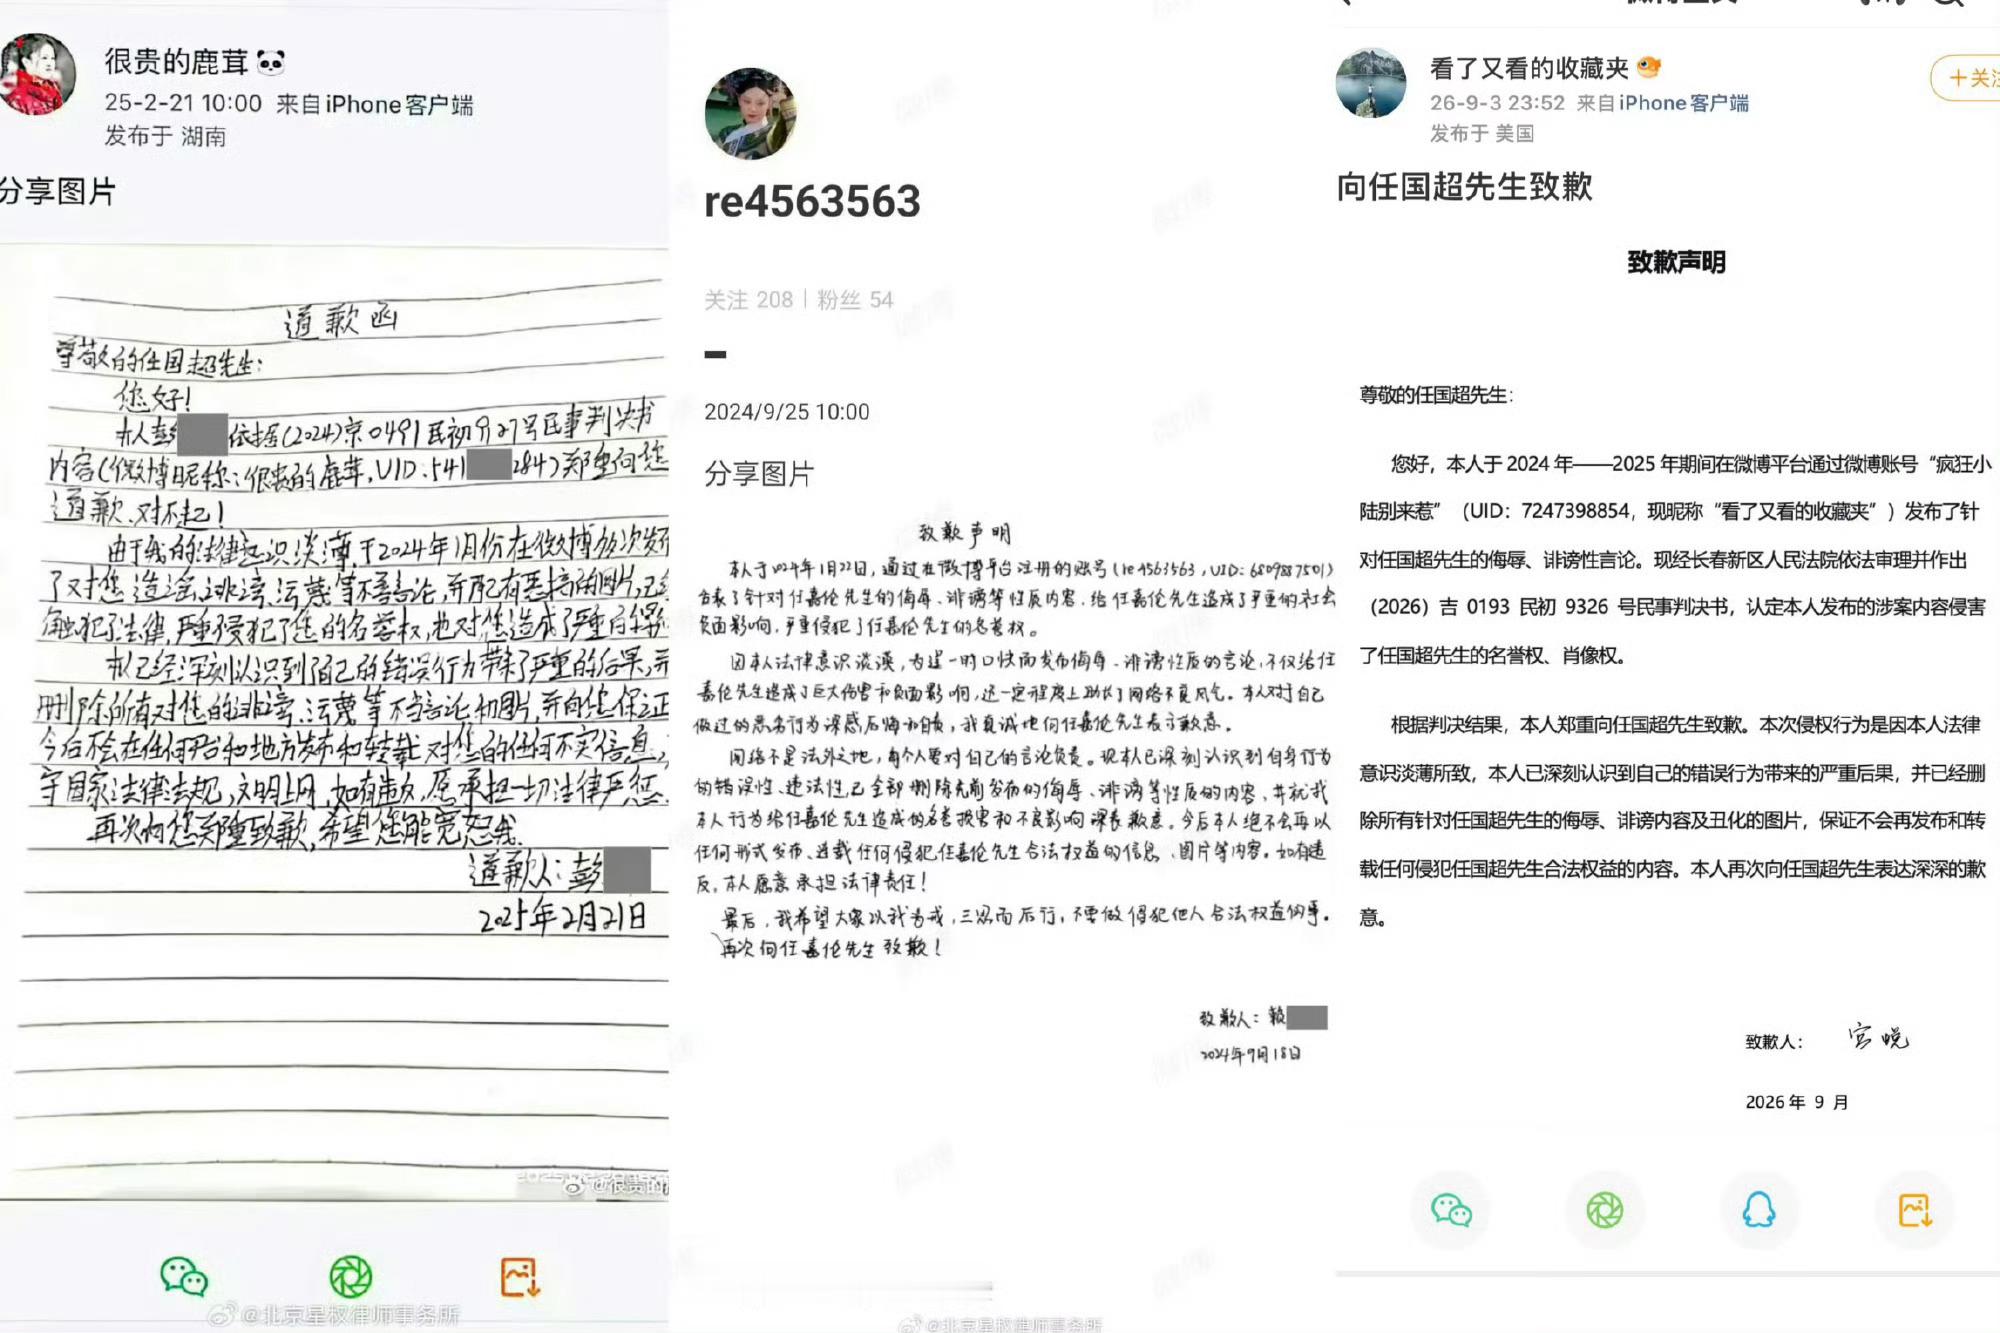 很贵的鹿茸
25-2-21 10:00 来自 iPhone客户端
发布于 湖南
分享图片
道歉函
尊敬的任国超先生:
您好!
本人彭 依据(2024)京0491民初927号民事判决书
内容(微博昵称:很贵的鹿茸,UID:541 284)郑重向您
道歉、对不起!
由于我的法律意识淡薄,于2024年1月份在微博多次发布
了对您造谣、诽谤、污蔑等不善言论,并配有恶搞的图片,已经
触犯了法律,严重侵犯了您的名誉权,也对您造成了严重的
本人已经深刻认识到了自己的错误行为带来了严重的后果,并
删除所有对您的诽谤、污蔑等不当言论和图片,并向您保证
今后不会在任何平台和地方发布和转载对您的任何不实信息,
守国家法律法规,文明上网,如有违反,愿承担一切法律严惩.
再次向您郑重致歉,希望您能宽恕我.
道歉人:彭
2025年2月21日
@很贵的
@北京星权律师事务所
re4563563
关注 208 | 粉丝 54
2024/9/25 10:00
分享图片
致歉声明
本人于2024年1月22日,通过在微博平台注册的账号(re4563563,UID:6809887501)
发表了针对任嘉伦先生的侮辱、诽谤等性质内容,给任嘉伦先生造成了严重的社会
负面影响,严重侵犯了任嘉伦先生的名誉权。
因本人法律意识淡漠,为逞一时口快而发布侮辱、诽谤性质的言论,不仅给任
嘉伦先生造成了巨大伤害和负面影响,还一定程度上助长了网络不良风气。本人对于自己
做过的恶劣行为深感后悔和自责,我真诚地向任嘉伦先生表示歉意。
网络不是法外之地,每个人要对自己的言论负责。现本人已深刻认识到自身行为
的错误性、违法性,已全部删除先前发布的侮辱、诽谤等性质的内容,并就我
本人行为给任嘉伦先生造成的名誉损害和不良影响深表歉意。今后本人绝不会再以
任何形式发布、进载任何侵犯任嘉伦先生合法权益的信息、图片等内容。如有违
反,本人愿意承担法律责任!
最后,我希望大家以我为戒,三思而后行,不要做侵犯他人合法权益的事。
再次向任嘉伦先生致歉!
致歉人:赖
2024年9月18日
@北京星权律师事务所
看了又看的收藏夹
+关注
26-9-3 23:52 来自 iPhone客户端
发布于 美国
向任国超先生致歉
致歉声明
尊敬的任国超先生:
您好,本人于 2024 年——2025 年期间在微博平台通过微博账号“疯狂小
陆别来惹”(UID:7247398854,现昵称“看了又看的收藏夹”)发布了针
对任国超先生的侮辱、诽谤性言论。现经长春新区人民法院依法审理并作出
(2026)吉 0193 民初 9326 号民事判决书,认定本人发布的涉案内容侵害
了任国超先生的名誉权、肖像权。
根据判决结果,本人郑重向任国超先生致歉。本次侵权行为是因本人法律
意识淡薄所致,本人已深刻认识到自己的错误行为带来的严重后果,并已经删
除所有针对任国超先生的侮辱、诽谤内容及丑化的图片,保证不会再发布和转
载任何侵犯任国超先生合法权益的内容。本人再次向任国超先生表达深深的歉
意。
致歉人: 宫悦
2026 年 9 月